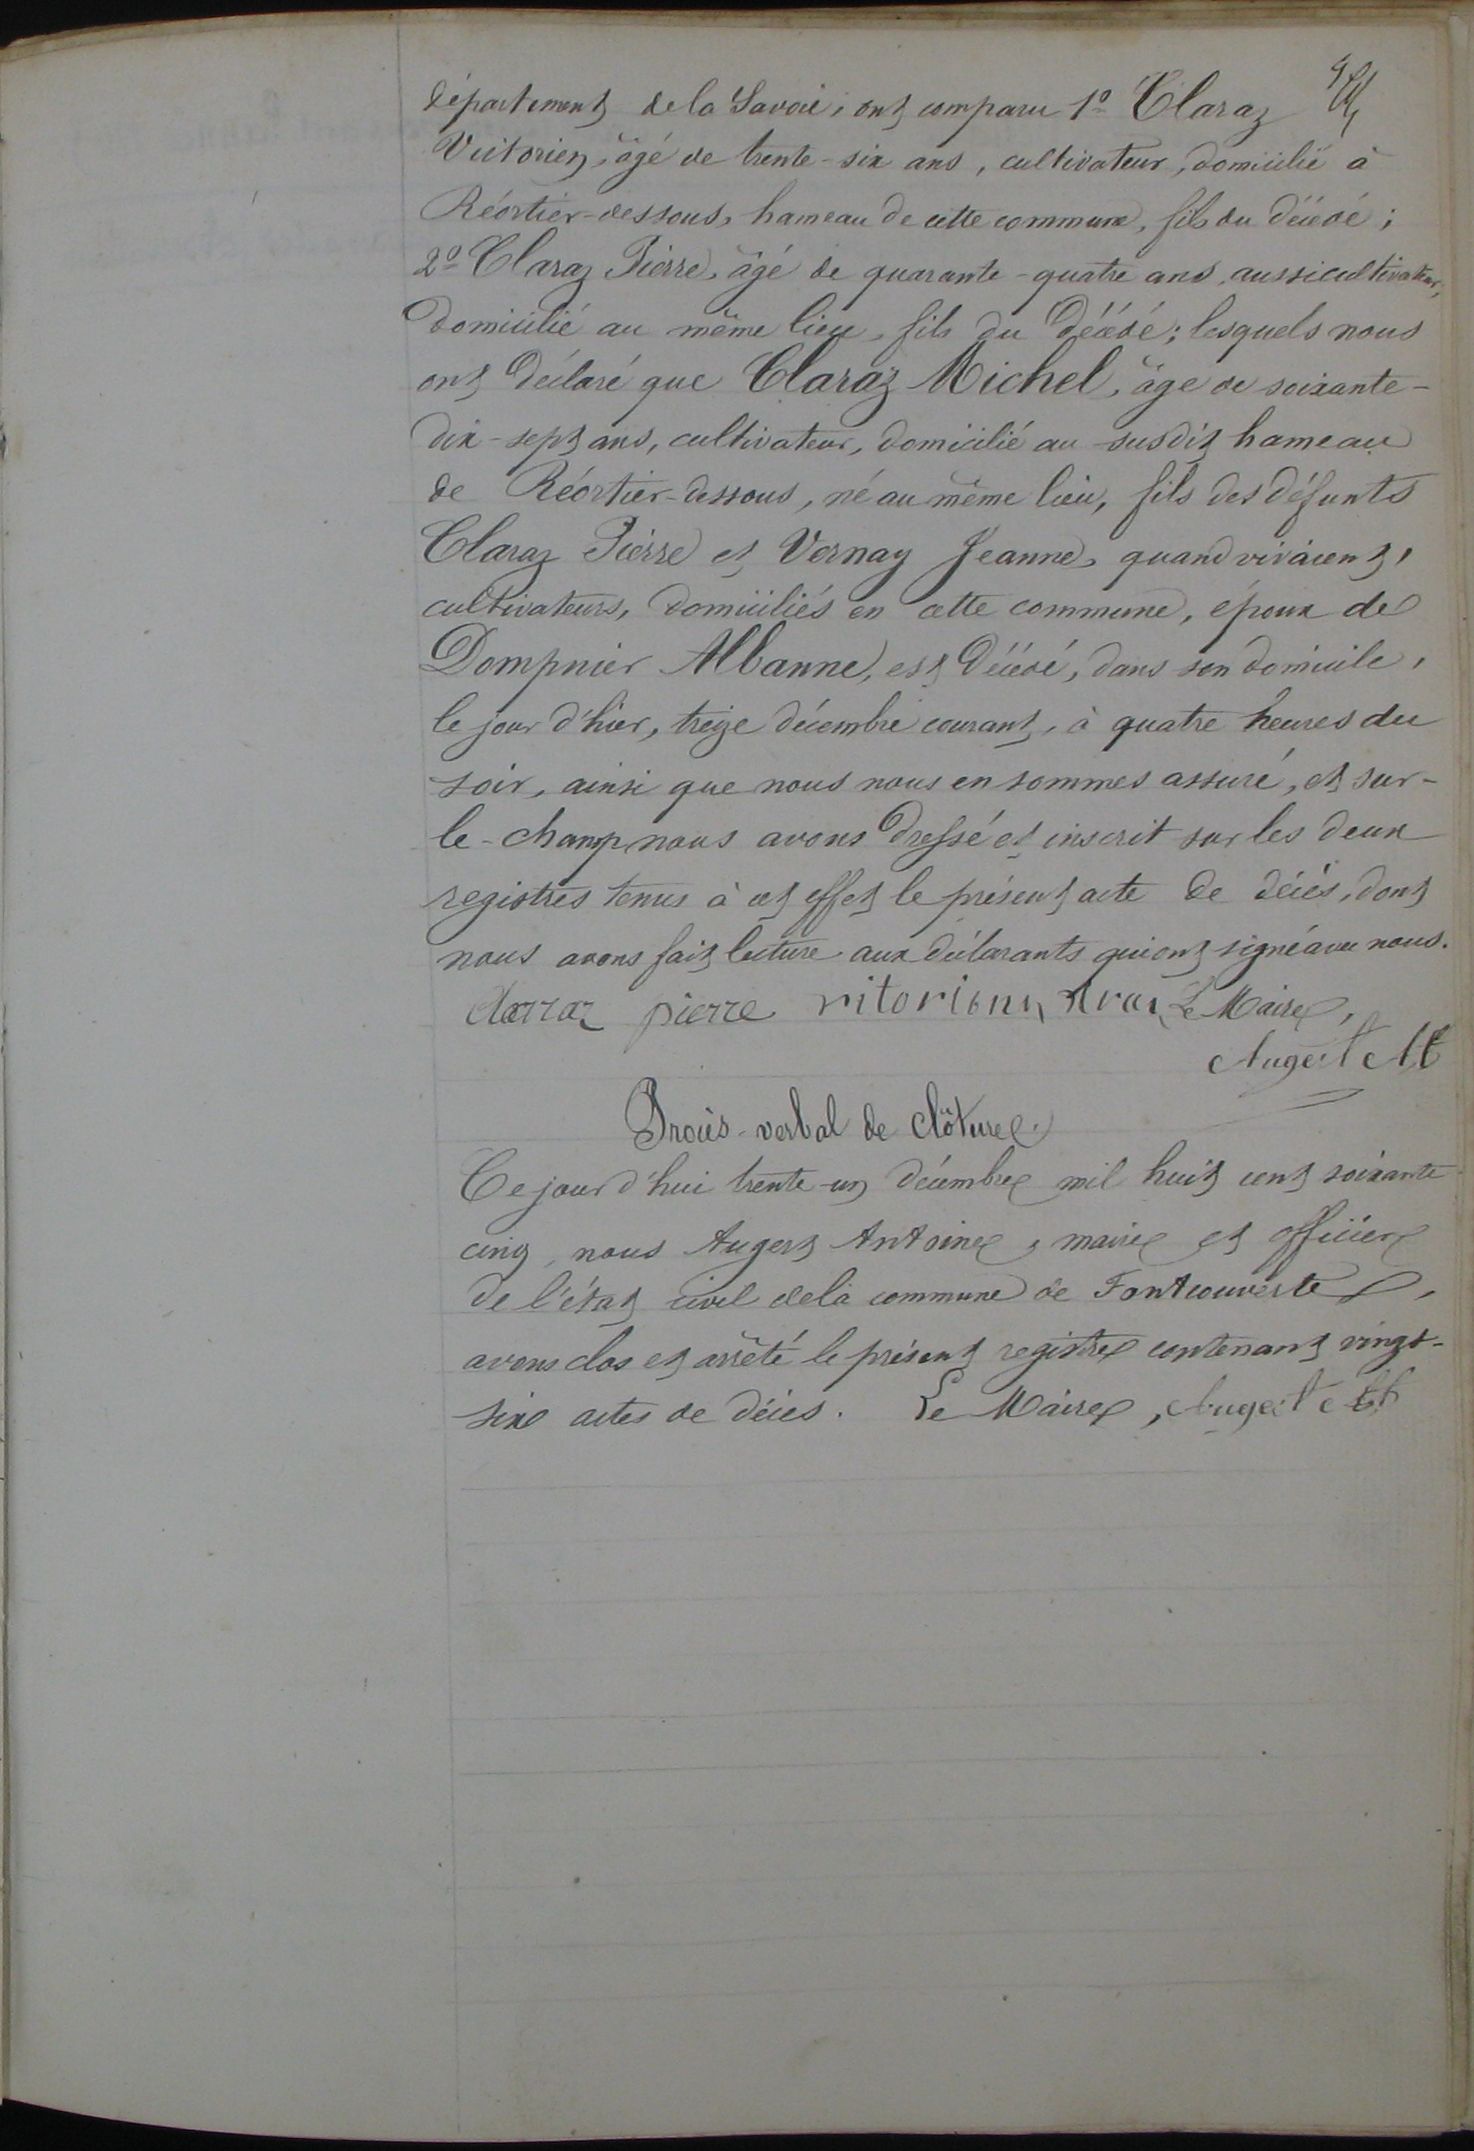 département de la Savoie, ont comparu 1º Claraz
Victorien, âgé de trente-six ans, cultivateur, domicilié à
Réortier-dessous, hameau de cette commune, fils du décédé;
2º Claraz Pierre, âgé de quarante-quatre ans, aussi cultivateur,
domicilié au même lieu, fils du décédé; lesquels nous
ont déclaré que Claraz Michel, âge de soixante-
dix-sept ans, cultivateur, domicilié au susdit hameau
de Réortier-dessous, né au même lieu, fils des défunts
Claraz Pierre et Vernay Jeanne, quand vivaient,
cultivateurs, domiciliés en cette commune, époux de
Dompnier Albanne, est décédé, dans son domicile,
le jour d'hier, treize décembre courant, à quatre heures du
soir, ainsi que nous nous en sommes assuré, et sur-
le-champ nous avons dressé et inscrit sur les deux
registres tenus à cet effet le présent acte de décès, dont
nous avons fait lecture aux déclarants qui ont signé avec nous.
clarraz pierre Le Maire,
Augert
Procès-verbal de clôture.
Ce jour d'hui trente-un décembre mil huit cent soixante
cinq, nous Augert Antoine, maire et officier
de l'état civil de la commune de Fontcouverte,
avons clos et arrêté le présent registre contenant vingt-
six actes de décès. Le Maire, Augert